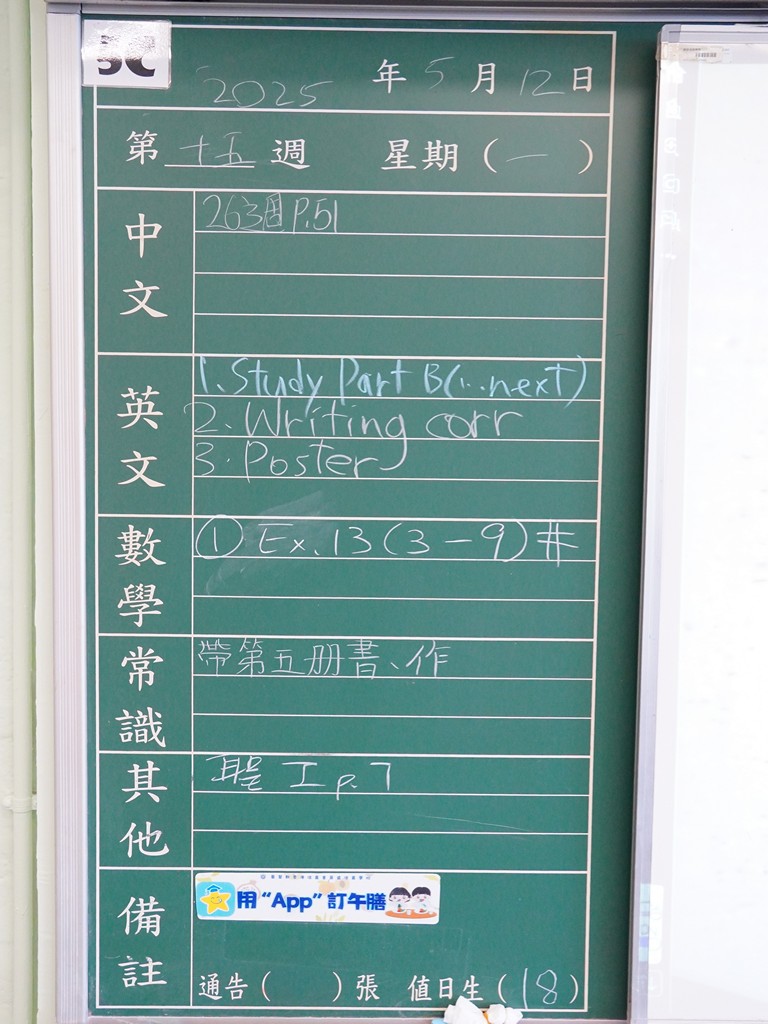 3C
2025 年 5 月 12 日
第 十五 週 星期 (一)
中文
263週 P.51
英文
1. Study Part B(...next)
2. Writing corr
3. Poster
數學
① Ex.13 (3-9) #
常識
帶第五册書、作
其他
工 p.7
備註
用 "App" 訂午膳
通告 ( ) 張 值日生 (18)